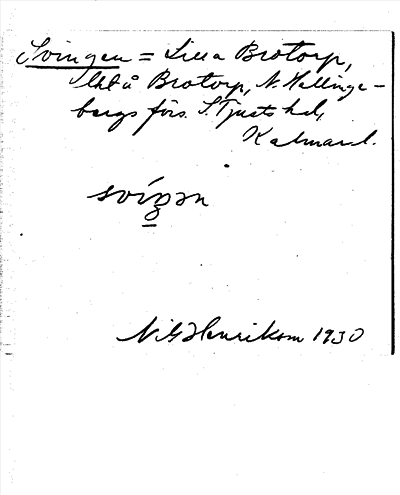 Svingen = Lilla Brotorp,
lht å Brotorp, N. Hallinge-
bergs förs. S. Tjusts hd,
Kalmar l.
Nils Henrikson 1930